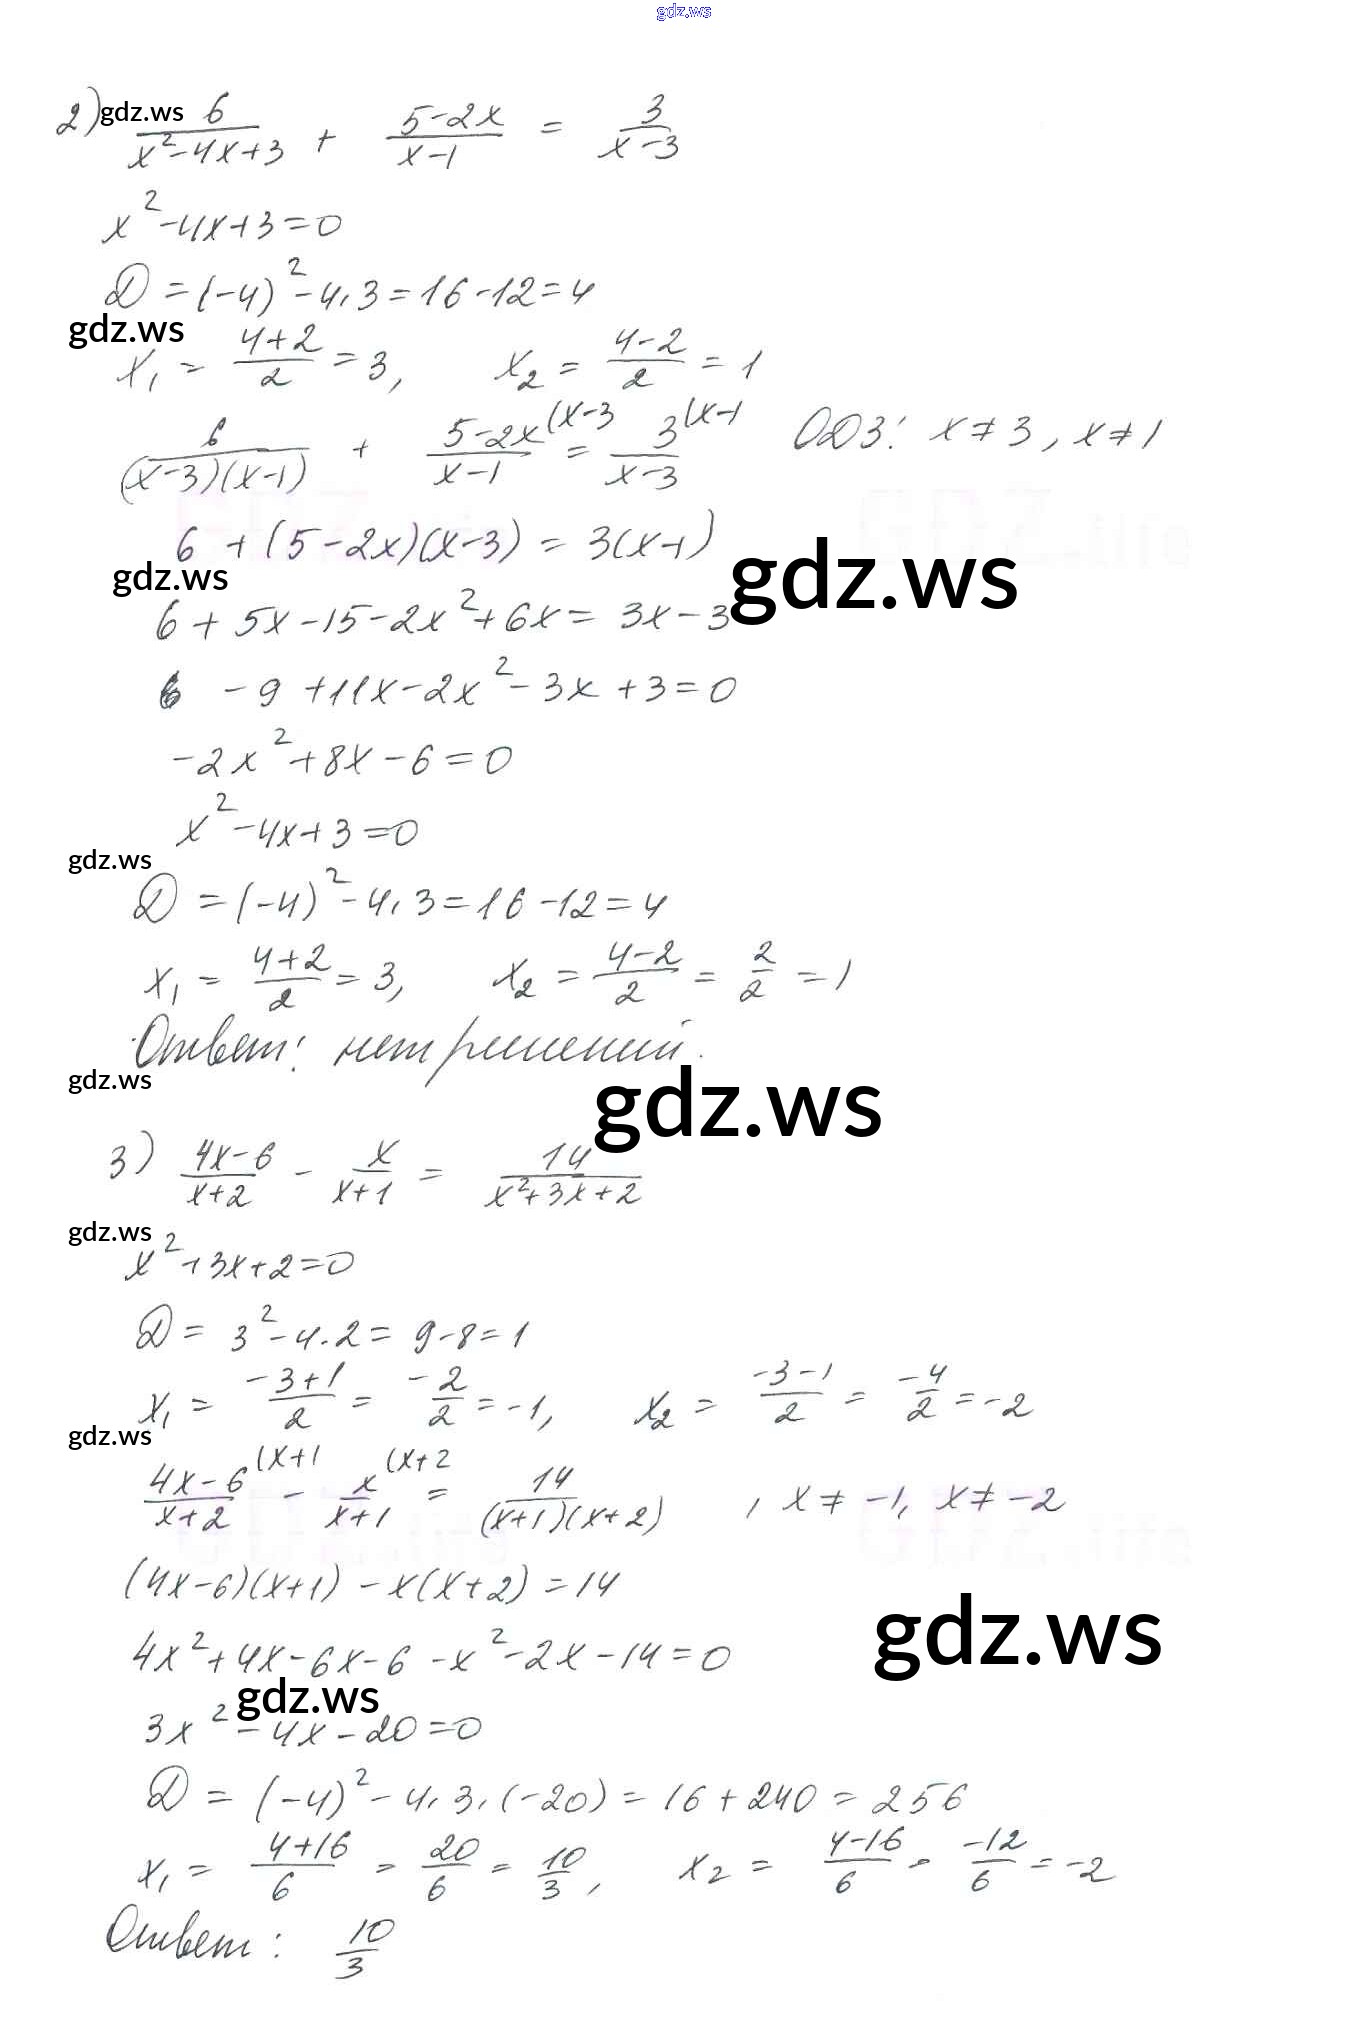 gdz.ws
2) gdz.ws 6/(x²-4x+3) + (5-2x)/(x-1) = 3/(x-3)
x²-4x+3=0
D=(-4)²-4·3=16-12=4
gdz.ws
x₁ = (4+2)/2 = 3, x₂ = (4-2)/2 = 1
6/((x-3)(x-1)) + (5-2x)/(x-1) (x-3 = 3/(x-3) (x-1 ОДЗ: x≠3, x≠1
6+(5-2x)(x-3) = 3(x-1)
gdz.ws gdz.ws
6+5x-15-2x²+6x= 3x-3
-9+11x-2x²-3x+3=0
-2x²+8x-6=0
x²-4x+3=0
gdz.ws
D=(-4)²-4·3=16-12=4
x₁ = (4+2)/2 = 3, x₂ = (4-2)/2 = 2/2 = 1
Ответ: нет решений.
gdz.ws gdz.ws
3) (4x-6)/(x+2) - x/(x+1) = 14/(x²+3x+2)
gdz.ws
x²+3x+2=0
D= 3²-4·2= 9-8=1
x₁ = (-3+1)/2 = -2/2 = -1, x₂ = (-3-1)/2 = -4/2 = -2
gdz.ws
(4x-6)/(x+2) (x+1 - x/(x+1) (x+2 = 14/((x+1)(x+2)) , x≠-1, x≠-2
(4x-6)(x+1)-x(x+2)=14
4x²+4x-6x-6-x²-2x-14=0
gdz.ws gdz.ws
3x²-4x-20=0
D=(-4)²-4·3·(-20)=16+240=256
x₁ = (4+16)/6 = 20/6 = 10/3, x₂ = (4-16)/6 = -12/6 = -2
Ответ: 10/3